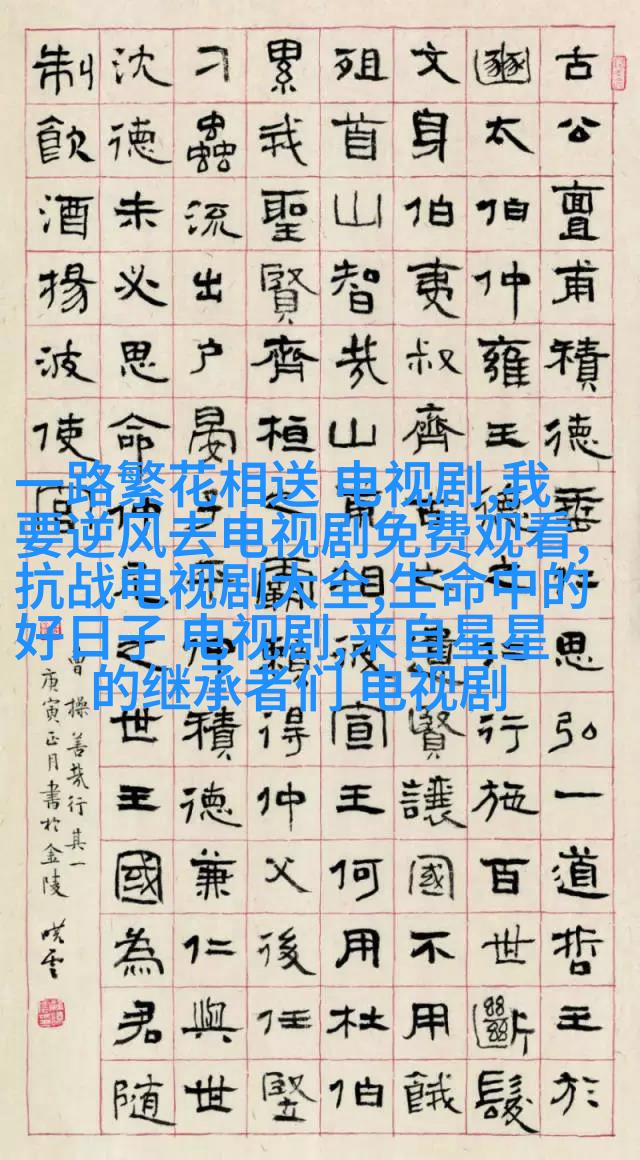 古公亶甫積德垂仁思弘一道哲王於
豳太伯仲雍王德之仁行施百世斷髮
文身伯夷叔齊古之遺賢讓國不用餓
殂首山智哉山甫相彼宣王何用杜伯
累我聖賢齊桓之霸賴得仲父後任豎
刁蟲流出戶晏子平仲積德兼仁與世
沈德未必思命仲尼之世王國為君隨
制飲酒揚波使官
曹操善哉行其一
庚寅正月書於金陵
一路繁花相送 电视剧,我
要逆风去电视剧免费观看,
抗战电视剧大全,生命中的
好日子 电视剧,来自星星
的继承者们 电视剧